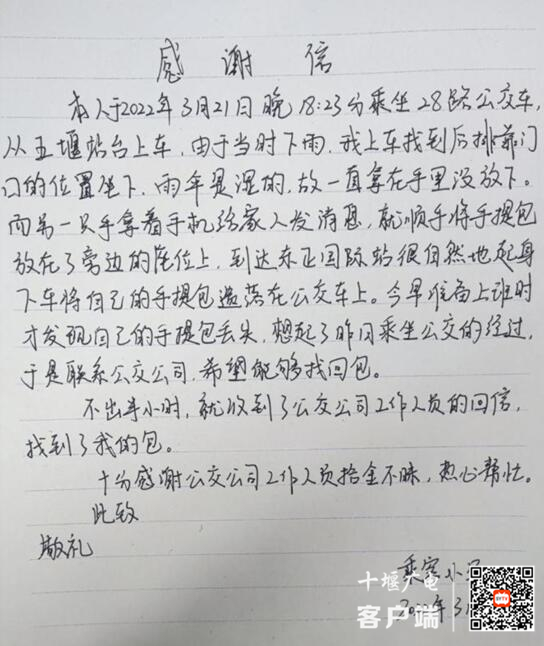 感谢信
本人于2022年3月21日晚18:23分乘坐28路公交车,
从五堰站台上车,由于当时下雨,我上车找到后排靠门
口的位置坐下,雨伞是湿的,故一直拿在手里没放下。
而另一只手拿着手机给家人发消息,就顺手将手提包
放在了旁边的座位上,到达东正国际站很自然地起身
下车将自己的手提包遗落在公交车上。今早准备上班时
才发现自己的手提包丢失,想起了昨日乘坐公交的经过,
于是联系公交公司,希望能够找回包。
不出半小时,就收到了公交公司工作人员的回信,
找到了我的包。
十分感谢公交公司工作人员拾金不昧,热心帮忙。
此致
敬礼
乘客小
年3
十堰广电
客户端